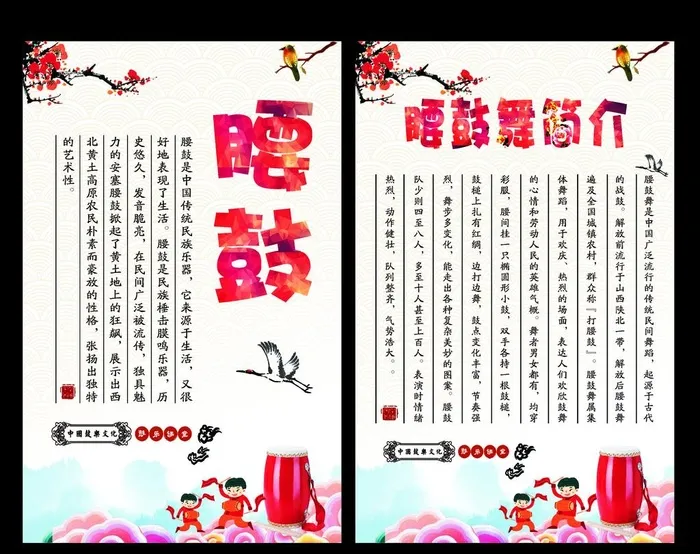 腰鼓
腰鼓是中国传统民族乐器，它来源于生活，又很
好地表现了生活。腰鼓是民族棰击膜鸣乐器，历
史悠久，发音脆亮，在民间广泛被流传，独具魅
力的安塞腰鼓掀起了黄土地上的狂飙，展示出西
北黄土高原农民朴素而豪放的性格，张扬出独特
的艺术性。
中國鼓樂文化
鼓乐课堂
腰鼓舞简介
腰鼓舞是中国广泛流行的传统民间舞蹈，起源于古代
的战鼓。解放前流行于山西陕北一带，解放后腰鼓舞
遍及全国城镇农村，群众称『打腰鼓』。腰鼓舞属集
体舞蹈，用于欢庆、热烈的场面，表达人们欢欣鼓舞
的心情和劳动人民的英雄气概。舞者男女都有，均穿
彩服，腰间挂一只椭圆形小鼓，双手各持一根鼓槌，
鼓槌上扎有红绸，边打边舞，鼓点变化丰富，节奏强
烈，舞步多变化，能走出各种复杂美妙的图案。腰鼓
队少则四至八人，多至十人甚至上百人。表演时情绪
热烈，动作健壮，队列整齐，气势浩大。。
中國鼓樂文化
鼓乐课堂